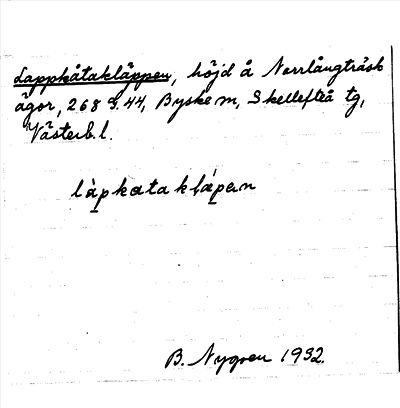 Lappkåtakläppen, höjd å Norrlångträsk
ägor, 268 S. 44, Byske m, Skellefteå tg,
Västerb. l.
làpkataklápan
B. Nygren 1932.